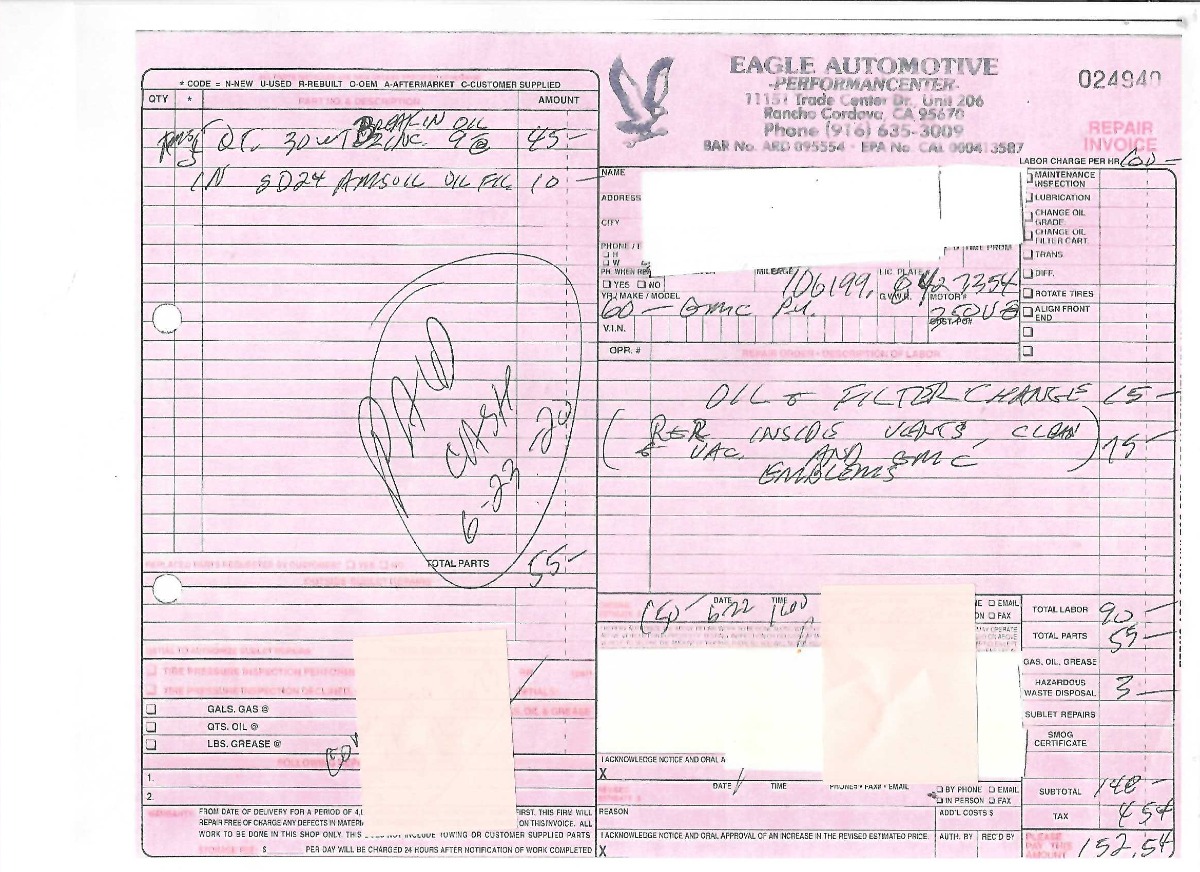 * CODE = N-NEW U-USED R-REBUILT O-OEM A-AFTERMARKET C-CUSTOMER SUPPLIED
QTY * PART NO. & DESCRIPTION AMOUNT
BREAK IN OIL
5 QT. 30 WT ZINC. 9 @ 45 —
1 N SD24 AMSOIL OIL FIL 10 —
PAID
CASH
6-23-20
TOTAL PARTS 55 —
GALS. GAS @
QTS. OIL @
LBS. GREASE @
1.
2.
WARRANTY
FROM DATE OF DELIVERY FOR A PERIOD OF
FIRST. THIS FIRM WILL
REPAIR FREE OF CHARGE ANY DEFECTS IN
ON THIS INVOICE. ALL
WORK TO BE DONE IN THIS SHOP ONLY. THIS DOES NOT INCLUDE TOWING OR CUSTOMER SUPPLIED PARTS
STORAGE FEE $ PER DAY WILL BE CHARGED 24 HOURS AFTER NOTIFICATION OF WORK COMPLETED
EAGLE AUTOMOTIVE
-PERFORMANCENTER-
11151 Trade Center Dr., Unit 206
Rancho Cordova, CA 95670
Phone (916) 635-3009
BAR No. ARD 095554 - EPA No. CAL 000413587
024940
REPAIR
INVOICE
LABOR CHARGE PER HR 60 —
NAME
ADDRESS
CITY
PHONE /
H
W
PH. WHEN
YES NO
MILEAGE 106199
LIC. PLATE
G.V.W.R. MOTOR#
YR./ MAKE / MODEL
60 — GMC P.U. 350 V8
V.I.N.
MAINTENANCE INSPECTION
LUBRICATION
CHANGE OIL GRADE
CHANGE OIL FILTER CART.
TRANS.
DIFF.
ROTATE TIRES
ALIGN FRONT END
OPR. # REPAIR ORDER - DESCRIPTION OF LABOR
OIL & FILTER CHANGE 15 —
( R&R INSIDE VENTS, CLEAN
& VAC. AND GMC ) 75 —
EMBLEMS
DATE TIME
6-22 1600
EMAIL
FAX
TOTAL LABOR 90 —
TOTAL PARTS 55 —
GAS, OIL, GREASE
HAZARDOUS WASTE DISPOSAL 3 —
SUBLET REPAIRS
SMOG CERTIFICATE
I ACKNOWLEDGE NOTICE AND ORAL A
X
DATE
PHONE# - FAX# - EMAIL
BY PHONE EMAIL
IN PERSON FAX
SUBTOTAL 148 —
REASON
ADD'L COSTS $
TAX 4.54
I ACKNOWLEDGE NOTICE AND ORAL APPROVAL OF AN INCREASE IN THE REVISED ESTIMATED PRICE.
AUTH. BY REC'D BY
X
PLEASE PAY THIS AMOUNT 152.54